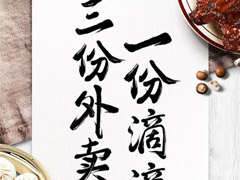 一份滴滴
三份外卖